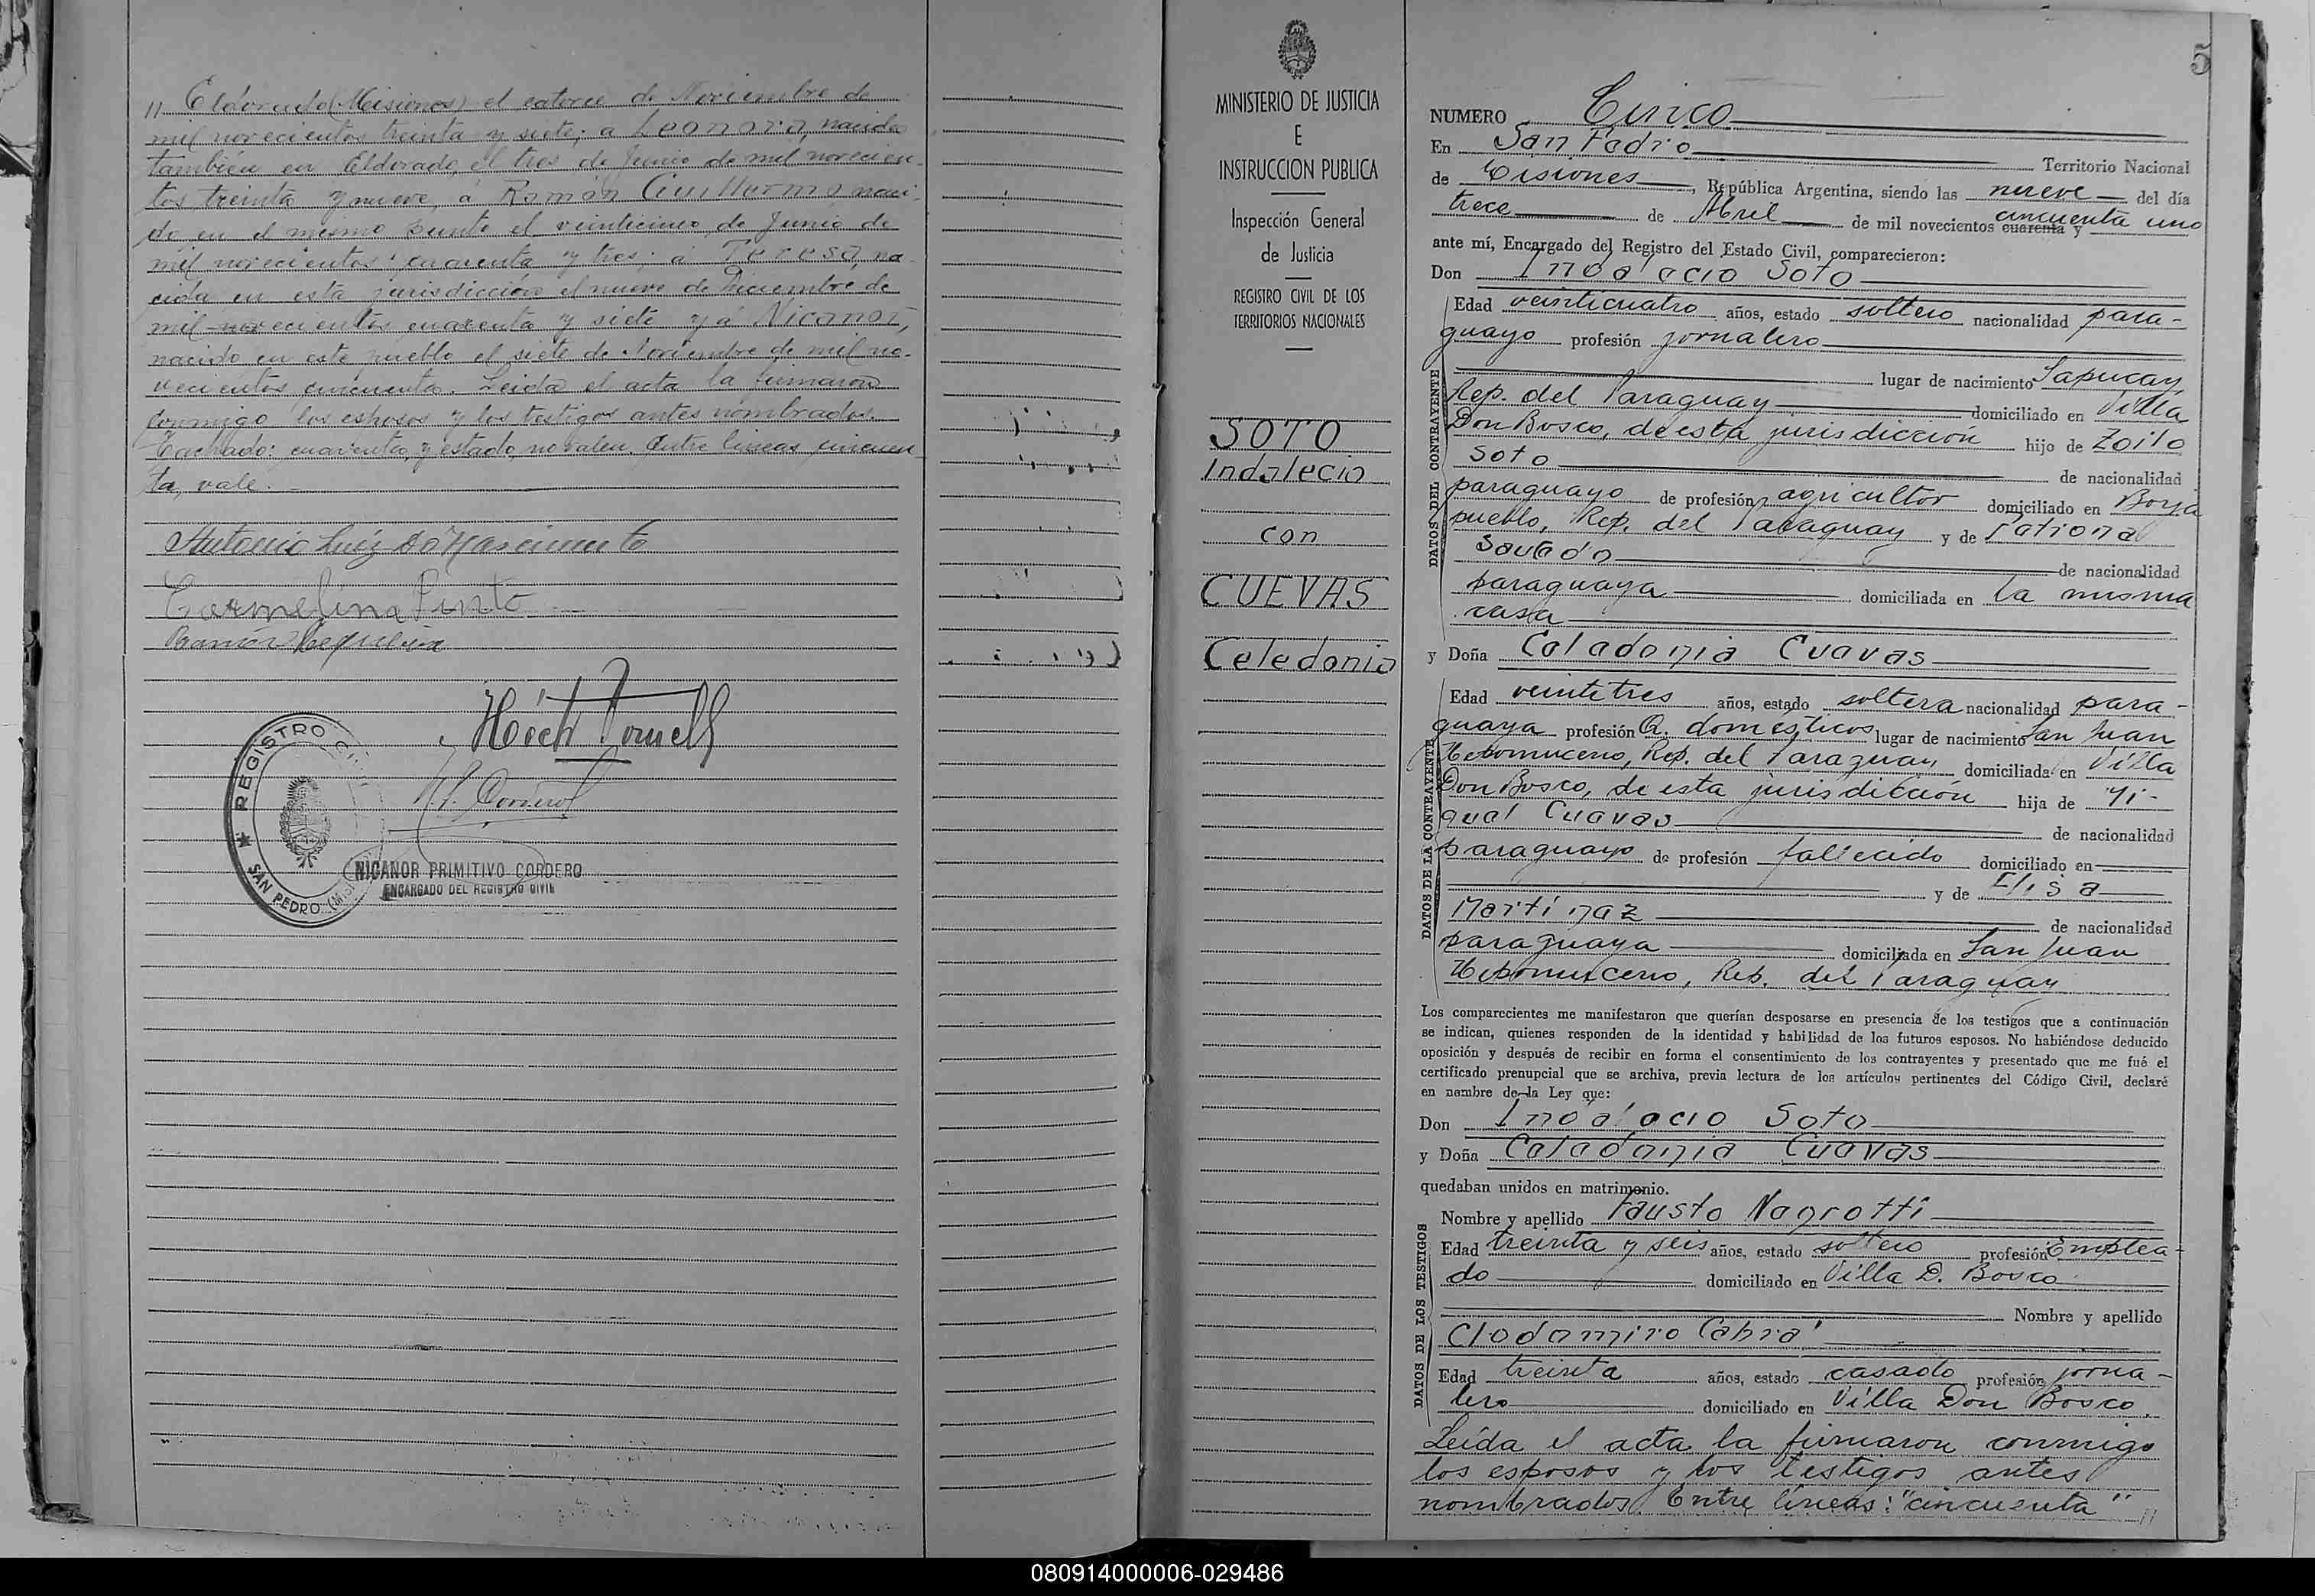 " Eldorado (Misiones) el catorce de Noviembre de
mil novecientos treinta y siete; a Leonora, nacida
también en Eldorado, el tres de Junio de mil novecien-
tos treinta y nueve, a Román Guillermo, naci-
do en el mismo punto el veinticinco de Junio de
mil novecientos cuarenta y tres; a Teresa, na-
cida en esta jurisdicción el nueve de Diciembre de
mil novecientos cuarenta y siete y a Nicanor,
nacido en este pueblo el siete de Noviembre de mil no-
vecientos cincuenta. Leida el acta la firmaron
conmigo los esposos y los testigos antes nombrados.
Tachado: cuarenta, y estado, no valen. Entre lineas cincuen-
ta, vale.
Antonio Luiz do Nascimento
Carmelina Pinto
Ramón Sequeira
REGISTRO CIVIL
SAN PEDRO (MIS
NICANOR PRIMITIVO CORDERO
ENCARGADO DEL REGISTRO CIVIL
MINISTERIO DE JUSTICIA
E
INSTRUCCION PUBLICA
Inspección General
de Justicia
REGISTRO CIVIL DE LOS
TERRITORIOS NACIONALES
SOTO
Indalecio
con
CUEVAS
Celedonia
5
NUMERO Cinco
En San Pedro Territorio Nacional
de Misiones, República Argentina, siendo las nueve del día
trece de Abril de mil novecientos cuarenta y cincuenta uno
ante mí, Encargado del Registro del Estado Civil, comparecieron:
Don Indalecio Soto
DATOS DEL CONTRAYENTE
Edad veinticuatro años, estado soltero nacionalidad para-
guayo profesión jornalero
lugar de nacimiento Sapucay,
Rep. del Paraguay domiciliado en Villa
Don Bosco, de esta jurisdicción hijo de Zoilo
Soto de nacionalidad
paraguayo de profesión agricultor domiciliado en Borja
pueblo, Rep. del Paraguay y de Petrona
de nacionalidad
paraguaya domiciliada en la misma
casa
y Doña Celedonia Cuevas
DATOS DE LA CONTRAYENTE
Edad veintitres años, estado soltera nacionalidad para-
guaya profesión Q. domésticos lugar de nacimiento San Juan
Nepomuceno, Rep. del Paraguay domiciliada en Villa
Don Bosco, de esta jurisdicción hija de Mi-
guel Cuevas de nacionalidad
paraguayo de profesión fallecido domiciliado en
y de Elisa
Martínez de nacionalidad
paraguaya domiciliada en San Juan
Nepomuceno, Rep. del Paraguay
Los comparecientes me manifestaron que querían desposarse en presencia de los testigos que a continuación
se indican, quienes responden de la identidad y habilidad de los futuros esposos. No habiéndose deducido
oposición y después de recibir en forma el consentimiento de los contrayentes y presentado que me fué el
certificado prenupcial que se archiva, previa lectura de los artículos pertinentes del Código Civil, declaré
en nombre de la Ley que:
Don Indalecio Soto
y Doña Celedonia Cuevas
quedaban unidos en matrimonio.
DATOS DE LOS TESTIGOS
Nombre y apellido Fausto Negrotti
Edad treinta y seis años, estado soltero profesión Emplea-
do domiciliado en Villa D. Bosco
Nombre y apellido
Clodomiro Cabral
Edad treinta años, estado casado profesión jorna-
lero domiciliado en Villa Don Bosco.
Leída el acta la firmaron conmigo
los esposos y los testigos antes
nombrados. Entre líneas: "cincuenta" "
080914000006-029486